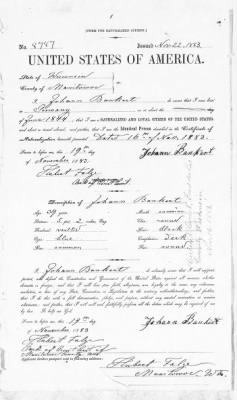 (FORM FOR NATURALIZED CITIZEN.)
No. 8787 Issued Nov 22, 1883.
UNITED STATES OF AMERICA.
State of Wisconsin
County of Manitowoc
I, Johann Bankert do swear that I was born
in Germany on or about the day
of June 1844; that I am a NATURALIZED AND LOYAL CITIZEN OF THE UNITED STATES,
and about to travel abroad; and further, that I am the Identical Person described in the Certificate
of Naturalization herewith presented. Dated 16th of Nov. 1883.
Sworn to before me this 19th Johann Bankert
day of
November 1883
Hubert Falge
Description of Johann Bankert
Age: 39 years Mouth: common
Stature: 5 feet 2 inches, Eng. Chin: round
Forehead: Hair: black
Eyes: blue Complexion: dark
Nose: common Face: round
I, Johann Bankert do solemnly swear that I will support,
protect, and defend the Constitution and Government of the United States against all enemies, whether
domestic or foreign; and that I will bear true faith, allegiance, and loyalty to the same, any ordinance,
resolution, or law of any State, Convention, or Legislature to the contrary notwithstanding; and further,
that I do this with a full determination, pledge, and purpose, without any mental reservation or evasion
whatsoever; and further, that I will well and faithfully perform all the duties which may be required of me
by law: So help me God.
Sworn to before me this 19th day
of November 1883 Johann Bankert
Hubert Falge
Manitowoc County
Hubert Falge
Manitowoc, Wis.